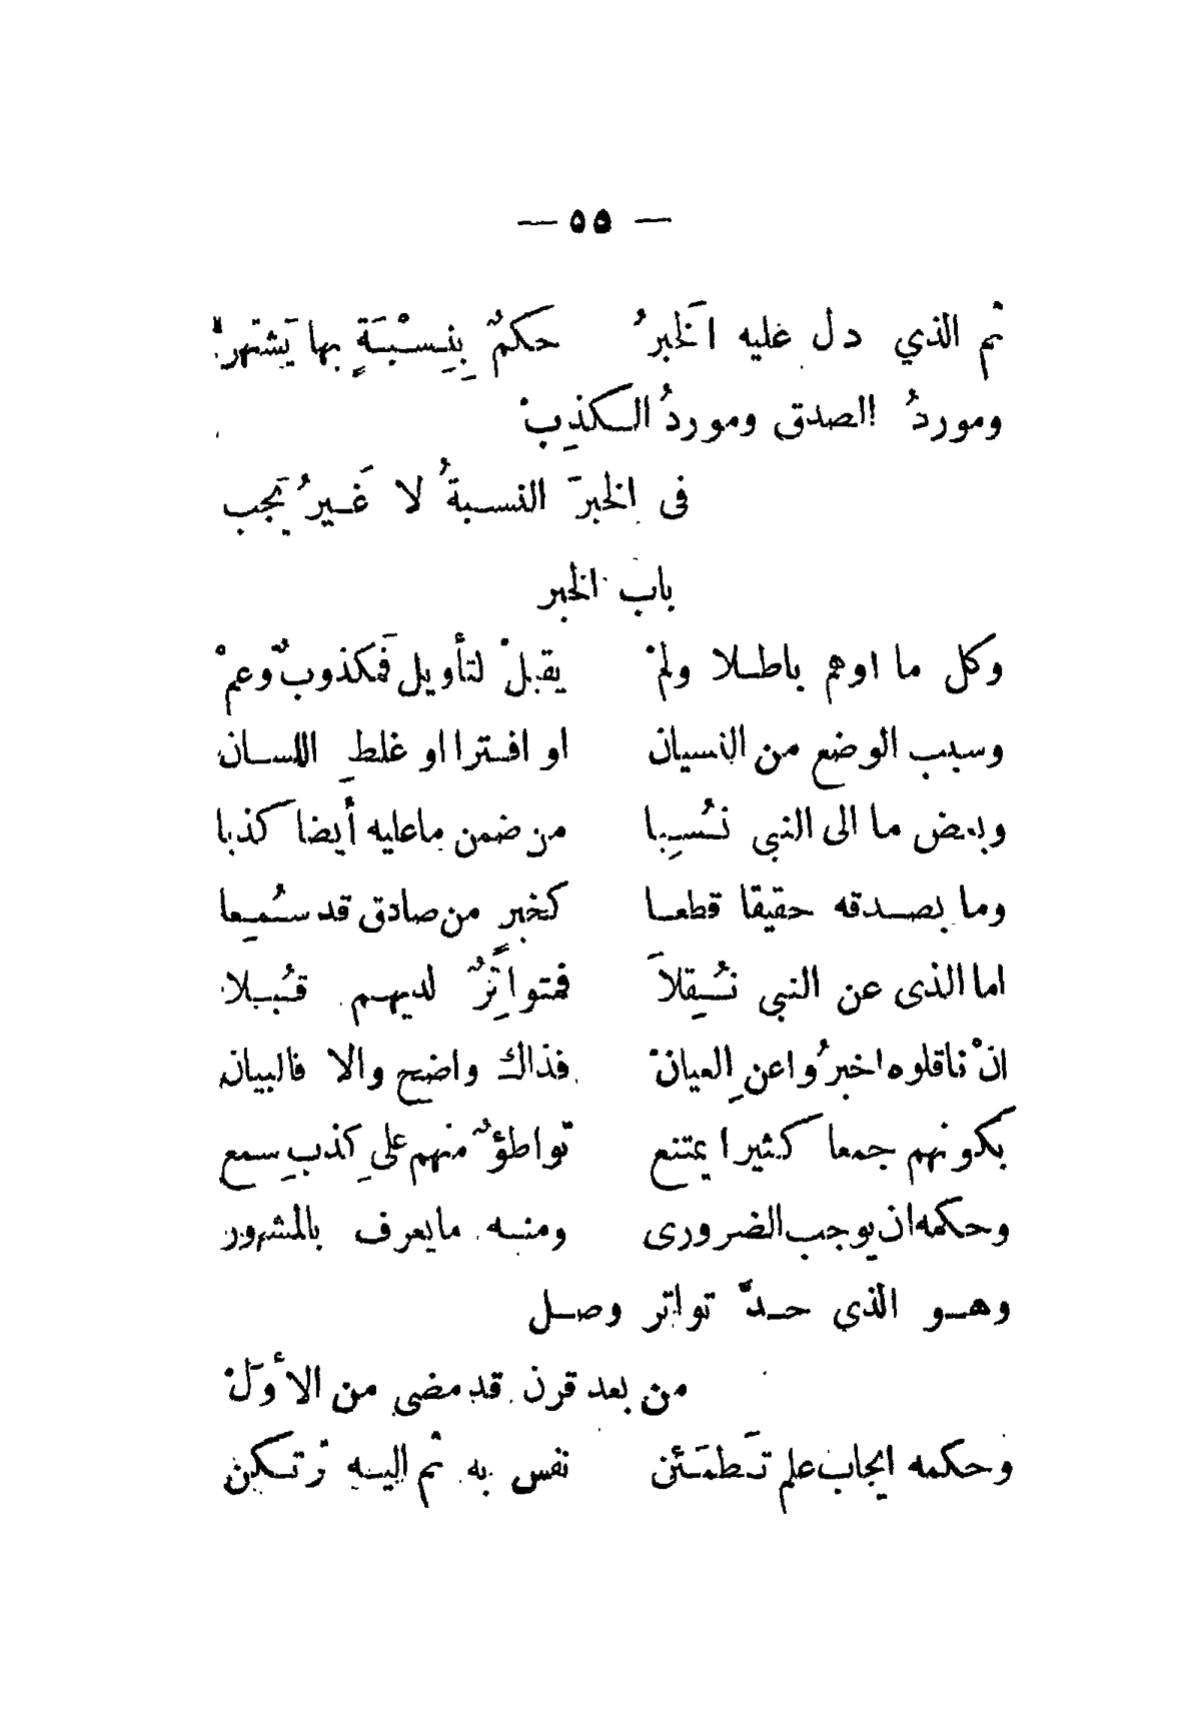 — ٥٥ —
ثم الذي دل عليه الخَبرُ حكمٌ بِنِسْبَةٍ بها يَشتهرُ
وموردُ الصدق وموردُ الكذِبْ
فى الخبرَ النسبةُ لا غَيرُ يَجب
باب الخبر
وكل ما اوهم باطلا ولمْ يقبلْ لتأويل فَمكذوبٌ وعمْ
وسبب الوضع من النسيان او افترا او غلطِ اللسان
وبعض ما الى النبى نُسِبا من ضمن ماعليه أيضا كذبا
وما بصدقه حقيقا قطعا كخبرٍ من صادق قد سُمِعا
اما الذى عن النبى نُقِلاَ فمتواتِرٌ لديهم قُبلا
انْ ناقلوه اخبرُوا عن العِيانْ فذاك واضح والا فالبيان
بكونهم جمعا كثيرا يمتنع تواطؤٌ منهم على كذبِ سمع
وحكمه ان يوجب الضرورى ومنه مايعرف بالمشهور
وهو الذي حدَّ تواتر وصل
من بعد قرن قد مضى من الأُوَلْ
وحكمه ايجاب علم تَطمَئن نفس به ثم اليه تَرتكن